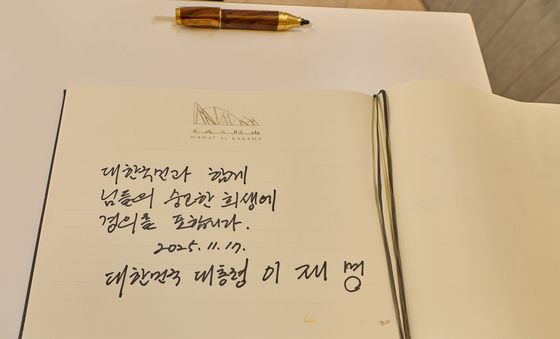 WAHAT AL KARAMA
대한국민과 함께
님들의 숭고한 희생에
경의를 표합니다.
2025. 11. 17.
대한민국 대통령 이 재 명